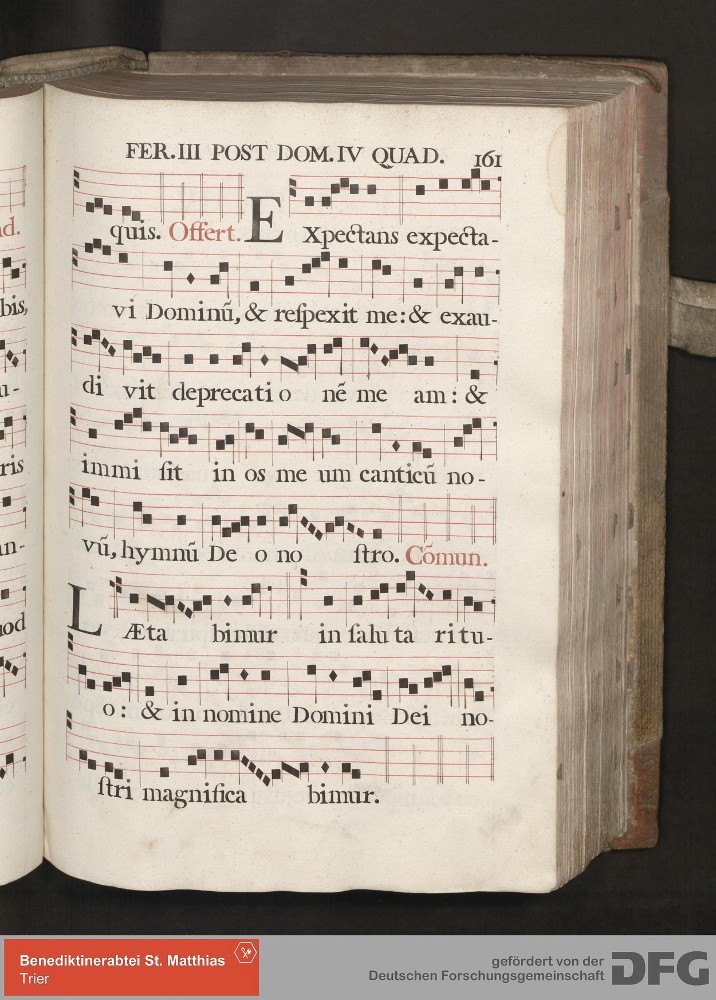 FER. III POST DOM. IV QUAD. 161
quis. Offert. EXpectans expecta-
vi Dominũ, & reſpexit me: & exau-
di vit deprecati o nẽ me am: &
immi ſit in os me um canticũ no-
vũ, hymnũ De o no ſtro. Cõmun.
LÆta bimur in ſalu ta ri tu-
o: & in nomine Domini Dei no-
ſtri magnifica bimur.
ad.
bis,
u-
ris
an-
uod
Benediktinerabtei St. Matthias
Trier
gefördert von der
Deutschen Forschungsgemeinschaft DFG